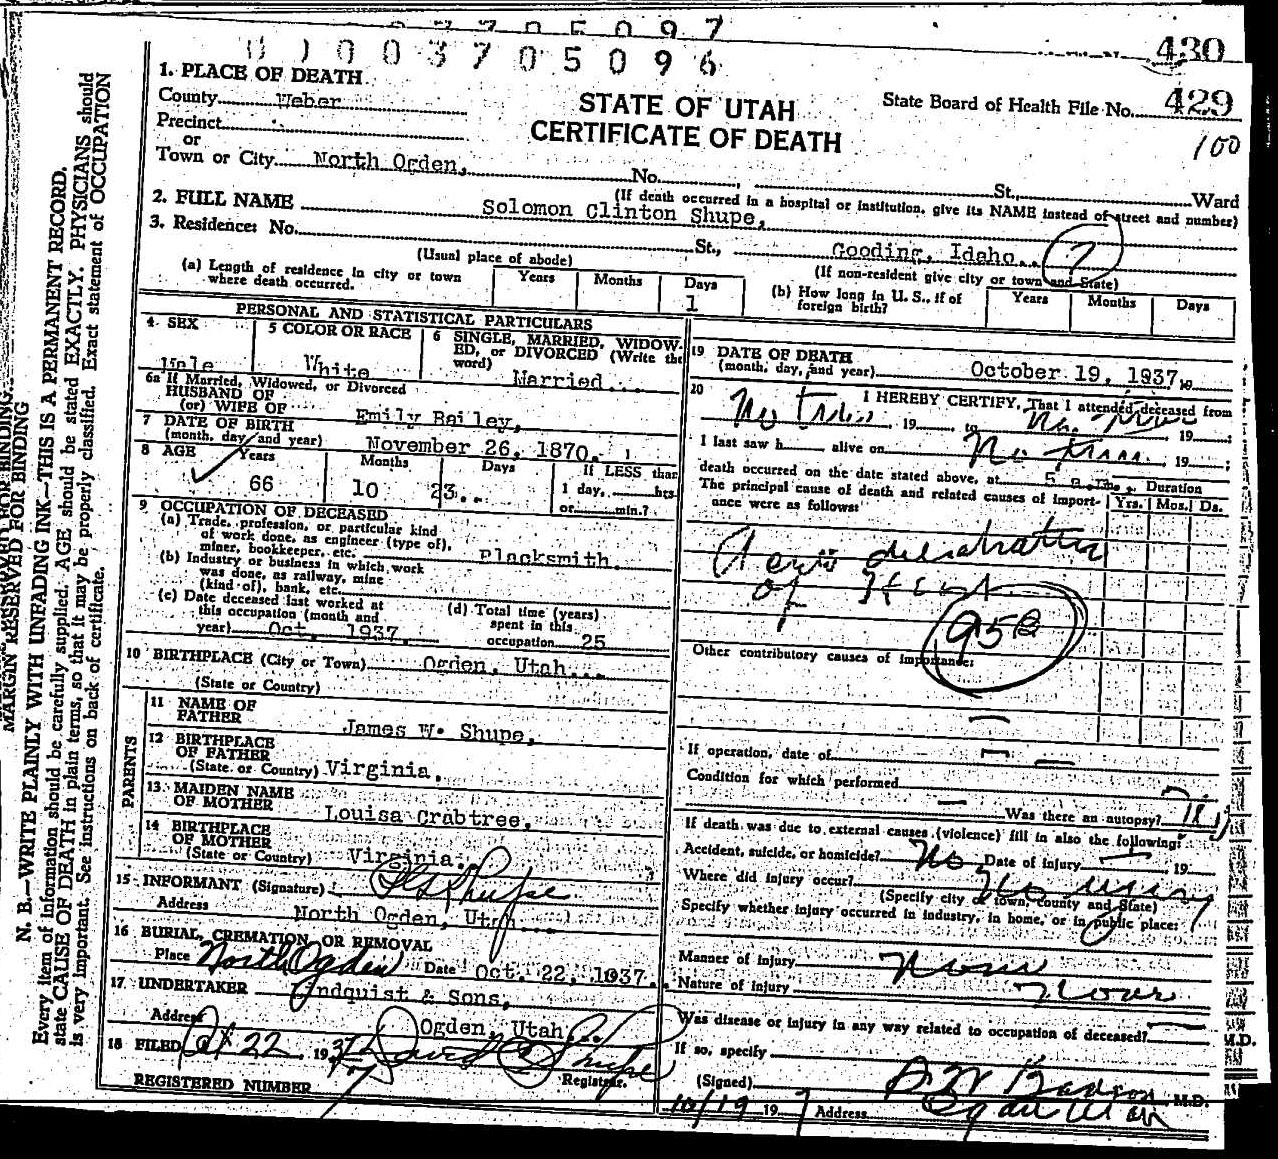 7 7 0 5 0 9 7
0 1 0 0 3 7 0 5 0 9 6
430
STATE OF UTAH
CERTIFICATE OF DEATH
State Board of Health File No. 429
100
1. PLACE OF DEATH
County Weber
Precinct
or
Town or City North Ogden, No. St., Ward
(If death occurred in a hospital or institution, give its NAME instead of street and number)
2. FULL NAME Solomon Clinton Shupe,
3. Residence: No. St., Gooding, Idaho. ?
(Usual place of abode) (If non-resident give city or town and State)
(a) Length of residence in city or town where death occurred. Years Months Days 1
(b) How long in U. S., if of foreign birth? Years Months Days
PERSONAL AND STATISTICAL PARTICULARS
4 SEX Male
5 COLOR OR RACE White
6 SINGLE, MARRIED, WIDOWED, or DIVORCED (Write the word) Married
6a If Married, Widowed, or Divorced
HUSBAND OF
(or) WIFE OF Emily Bailey,
7 DATE OF BIRTH
(month, day, and year) November 26, 1870.
8 AGE Years 66 Months 10 Days 23
If LESS than 1 day, hrs. or min.?
9 OCCUPATION OF DECEASED
(a) Trade, profession, or particular kind
of work done, as engineer (type of),
miner, bookkeeper, etc. Blacksmith.
(b) Industry or business in which work
was done, as railway, mine
(kind of), bank, etc.
(c) Date deceased last worked at
this occupation (month and
year) Oct. 1937.
(d) Total time (years)
spent in this
occupation 25
10 BIRTHPLACE (City or Town) Ogden, Utah
(State or Country)
PARENTS
11 NAME OF
FATHER James W. Shupe,
12 BIRTHPLACE
OF FATHER
(State or Country) Virginia,
13 MAIDEN NAME
OF MOTHER Louisa Crabtree,
14 BIRTHPLACE
OF MOTHER
(State or Country) Virginia.
15 INFORMANT (Signature) Shupe
Address North Ogden, Utah
16 BURIAL, CREMATION, OR REMOVAL
Place North Ogden Date Oct. 22, 1937.
17 UNDERTAKER Lindquist & Sons,
Address Ogden, Utah
18 FILED Oct 22, 1937 David Shupe
Registrar.
REGISTERED NUMBER 7
19 DATE OF DEATH
(month, day, and year) October 19, 1937, 19
20 I HEREBY CERTIFY, That I attended deceased from
No time, 19 to No time 19 ;
I last saw h alive on No time, 19 ;
death occurred on the date stated above, at 5 a.m.
The principal cause of death and related causes of importance were as follows:
Duration
Yrs. Mos. Ds.
Acute dilatation
of Heart
95B
Other contributory causes of importance:
If operation, date of
Condition for which performed
Was there an autopsy? no
If death was due to external causes (violence) fill in also the following:
Accident, suicide, or homicide? No Date of injury 19
Where did injury occur? No injury
(Specify city or town, county and State)
Specify whether injury occurred in industry, in home, or in public place:
Manner of injury None
Nature of injury None
Was disease or injury in any way related to occupation of deceased?
If so, specify
(Signed) M.D.
10/19 1937 Address Ogden Utah
M.D.
MARGIN RESERVED FOR BINDING
N. B.—WRITE PLAINLY WITH UNFADING INK—THIS IS A PERMANENT RECORD.
Every item of information should be carefully supplied. AGE should be stated EXACTLY. PHYSICIANS should
state CAUSE OF DEATH in plain terms, so that it may be properly classified. Exact statement of OCCUPATION
is very important. See instructions on back of certificate.